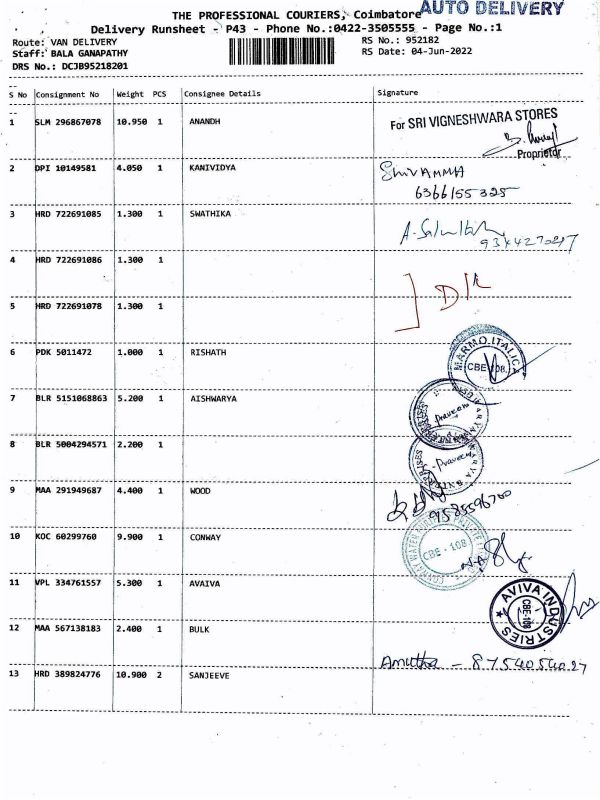 THE PROFESSIONAL COURIERS, Coimbatore AUTO DELIVERY
Delivery Runsheet - P43 - Phone No.:0422-3505555 - Page No.:1
Route: VAN DELIVERY RS No.: 952182
Staff: BALA GANAPATHY RS Date: 04-Jun-2022
DRS No.: DCJB95218201
S No Consignment No Weight PCS Consignee Details Signature
1 SLM 296867078 10.950 1 ANANDH For SRI VIGNESHWARA STORES
Proprietor
2 DPI 10149581 4.050 1 KANIVIDYA SHIVAMMA
6366155325
3 HRD 722691085 1.300 1 SWATHIKA
4 HRD 722691086 1.300 1
5 HRD 722691078 1.300 1
6 PDK 5011472 1.000 1 RISHATH MARMO ITALICA
CBE 108
7 BLR 5151068863 5.200 1 AISHWARYA Praveen
8 BLR 5004294571 2.200 1 Praveen
9 MAA 291949687 4.400 1 WOOD 9585596700
10 KOC 60299760 9.900 1 CONWAY CBE - 108
11 VPL 334761557 5.300 1 AVAIVA AVIVA INDUSTRIES
CBE-108
12 MAA 567138183 2.400 1 BULK
13 HRD 389824776 10.900 2 SANJEEVE Amutha - 8754054027